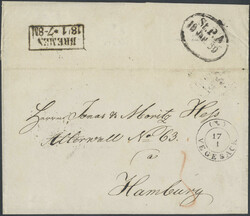 BREMEN
18/1 *7-8N
St.P.A.
18 JAN
Herren Jonas & Moritz Hess
Alterwall No 63.
a
Hamburg
17
1
VEGESACK